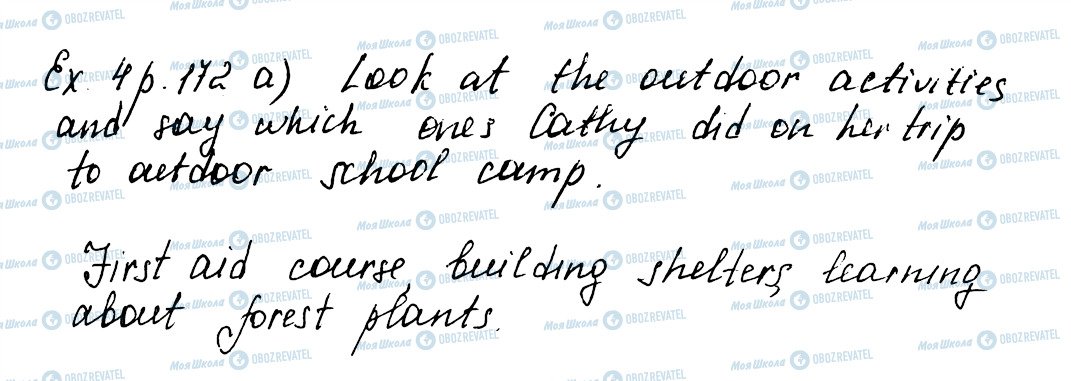 Ex. 4 p. 172 a) Look at the outdoor activities
and say which ones Cathy did on her trip
to outdoor school camp.
First aid course, building shelters, learning
about forest plants.